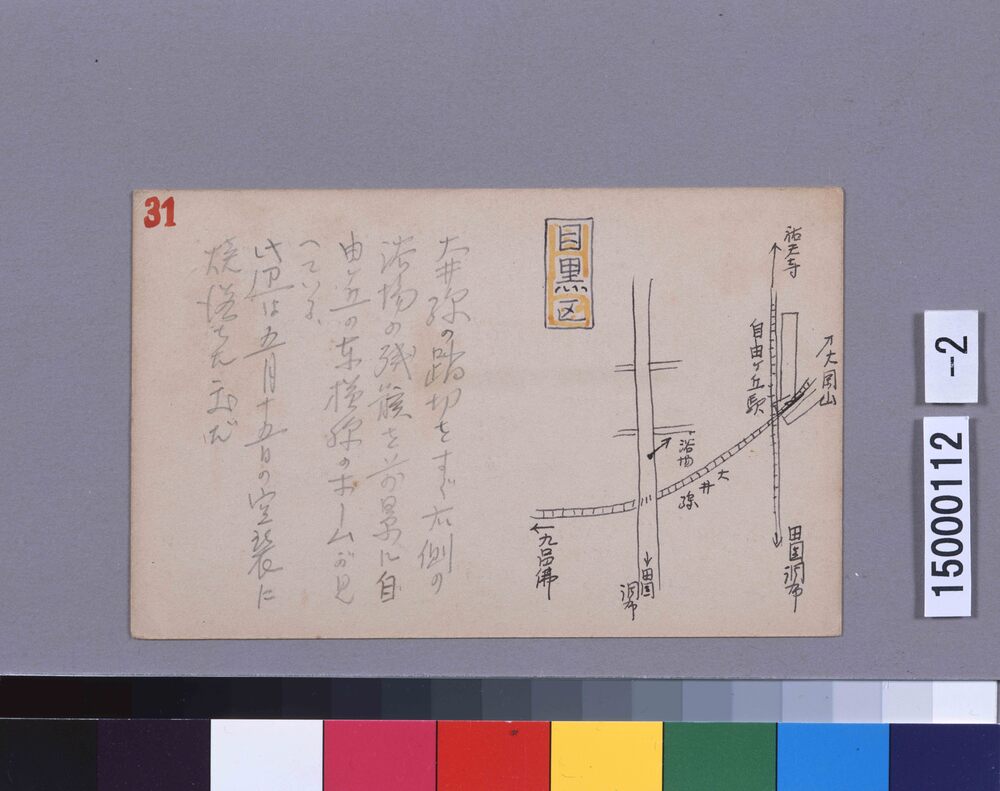 31
目黒区
祐天寺
大岡山
自由ヶ丘駅
浴場
大井線
九品佛
田園調布
田園調布
大井線の踏切をすぐ右側の
浴場の残骸を前景に自
由ヶ丘の東横線のホームが見
へている、
此辺は五月廿五日の空襲に
-2
15000112